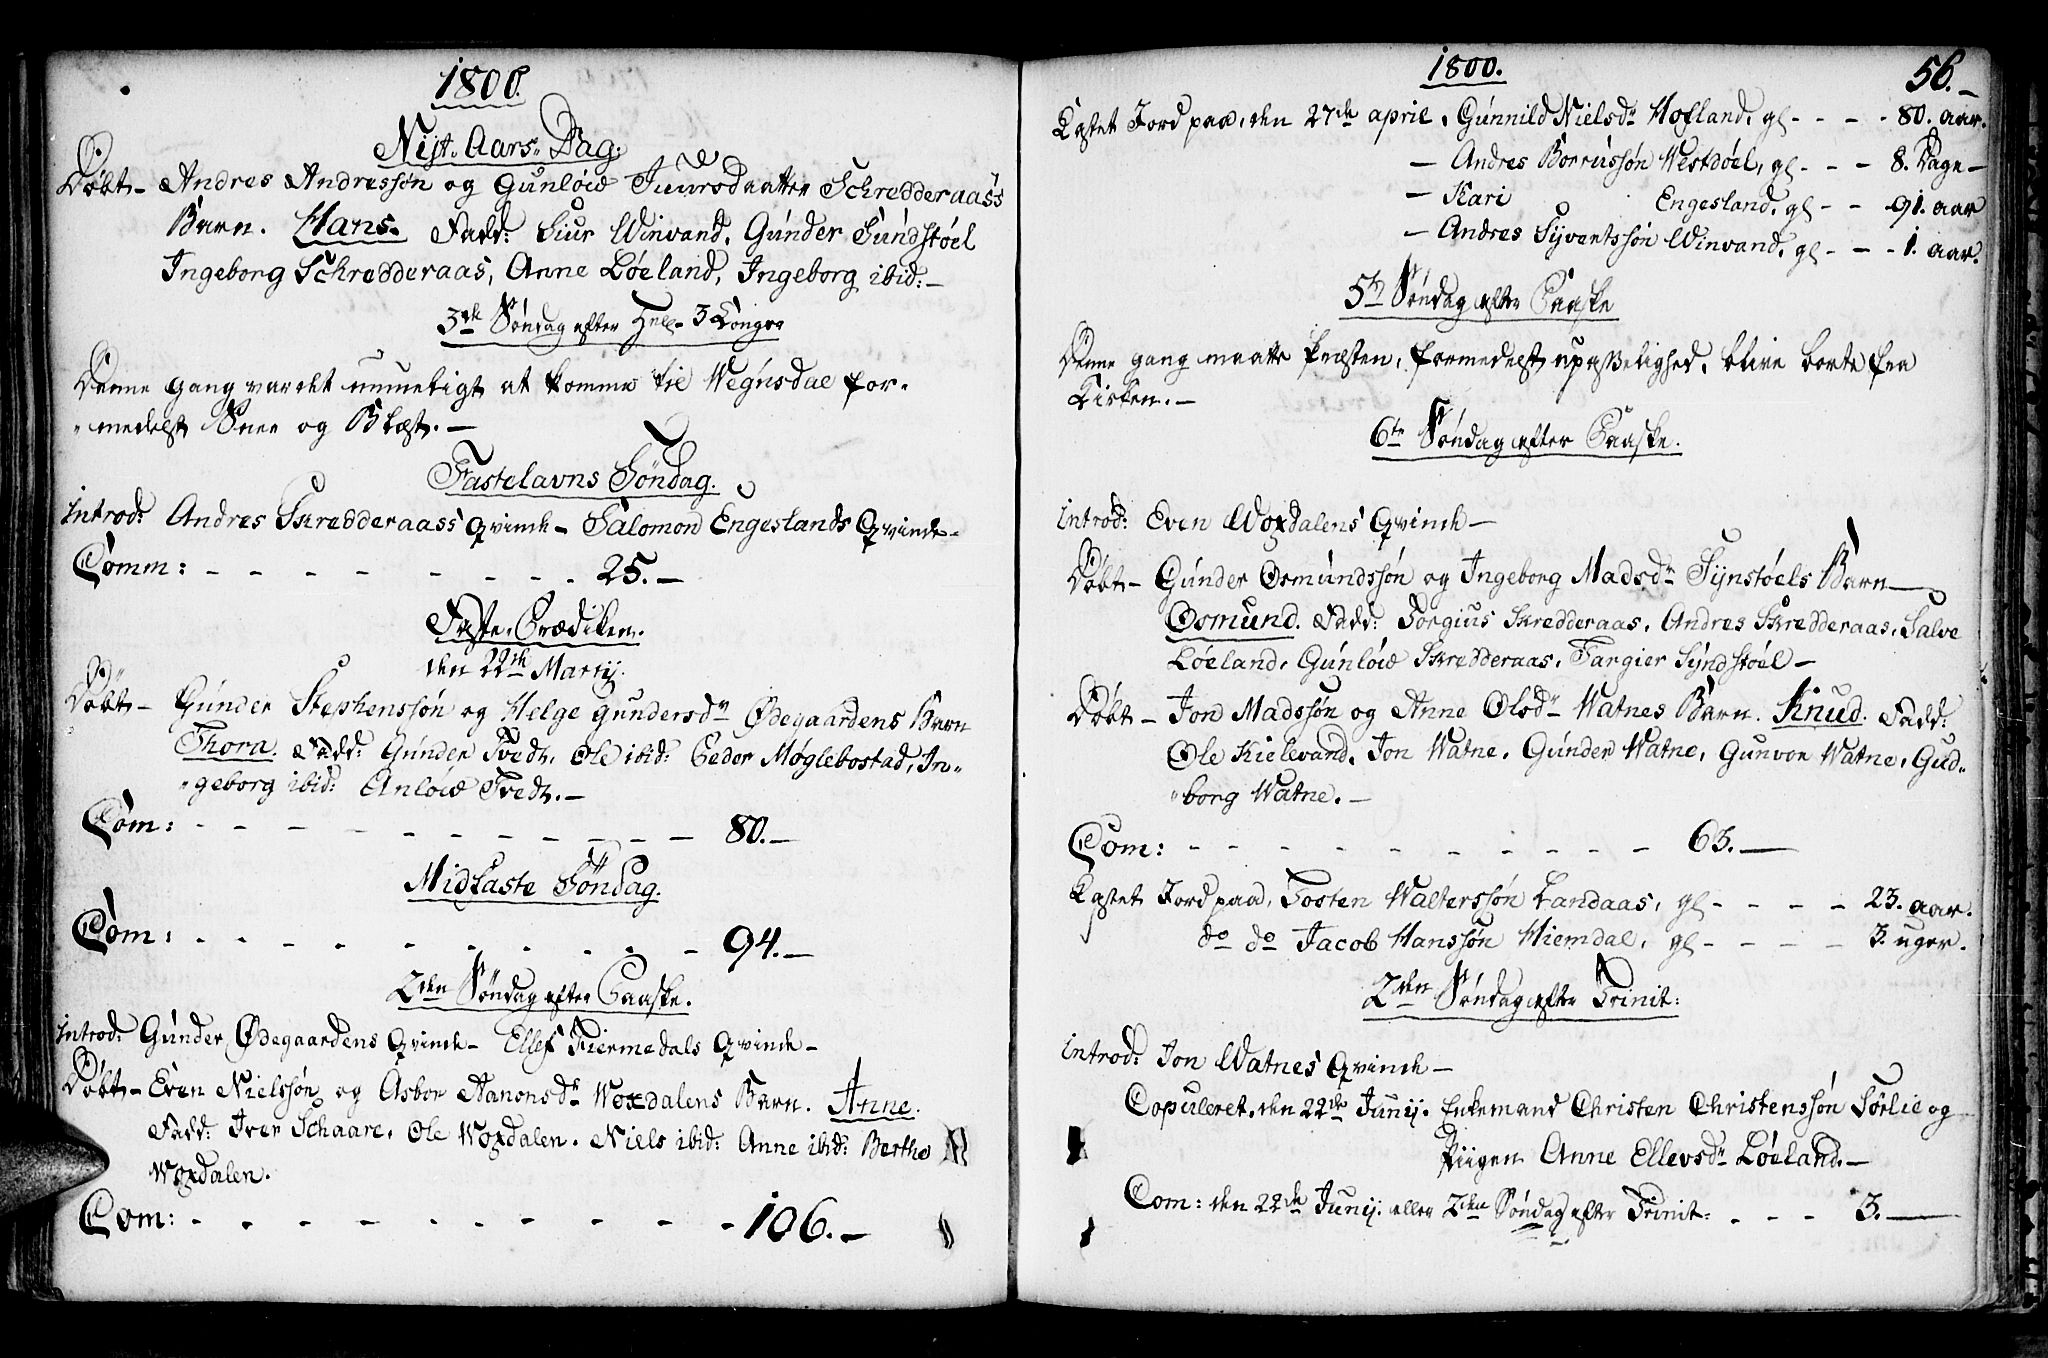 1800.
Nyt-Aars-Dag.
Døbt – Andres Andressøn og Gunløid Siursdaatter Schredderaass
Barn. Hans. Fadd: Siur Winvand, Gunder Sundstøel
Ingeborg Schredderaas, Anne Løeland, Ingeborg ibid: –
3die Søndag efter Hell- 3 Konger
Denne gang var det umueligt at komme til Wegusdal for-
"medelst Snee og Blæst. –
Fastelavns Søndag.
Introd: Andres Skredderaass Qvinde – Salomon Engeslands Qvinde –
Comm: – – – – – – – – 25. –
Faste-Prædiken.
den 22de Martij.
Døbt – Gunder Stephenssøn og Helge Gundersdr Ødegaardens Barn
Thora. Fadd: Gunder Tvedt, Ole ibid: Peder Møglebostad, In-
"geborg ibid: Anløid Tvedt. –
Com: – – – – – – – – – – 80. –
Midfaste Søndag.
Com: – – – – – – – – – – 94. –
2den Søndag efter Paaske.
Introd: Gunder Ødegaardens Qvinde – Ellef Fiermedals Qvinde –
Døbt – Even Nielssøn og Asbor Aanonsdr Woxdalens Barn. Anne.
Fadd: Iver Schaare, Ole Woxdalen, Niels ibid: Anne ibid: Berthe
Woxdalen.
Com: – – – – – – – – – – 106. –
1800. 56. –
Kastet Jord paa, den 27de april, Gunnild Nielsdr Hofland, gl – – – – 80. aar.
– Andres Borrussøn Westdøel, gl – – – 8. Dage –
– Kari Engesland, gl – – 91. aar
– Andres Syventssøn Winvand, gl – – – 1. aar.
5te Søndag efter Paaske
Denne gang maatte Præsten, formedelst upasselighed, blive borte fra
Kirken. –
6te Søndag efter Paaske.
Introd: Even Woxdalens Qvinde –
Døbt – Gunder Osmundssøn og Ingeborg Madsdr Synstøels Barn –
Osmund. Fadd: Torgius Skredderaas, Andres Skredderaas, Salve
Løeland, Gunløid Skredderaas, Targier Syndstøel –
Døbt – Jon Madssøn og Anne Olsdr Watnes Barn. Knud. Fadd:
Ole Kielevand, Jon Watne, Gunder Watne, Gunvor Watne, Gud-
"borg Watne. –
Com: – – – – – – – – – – 63. –
Kastet Jord paa, Tosten Walterssøn Landaas, gl – – – – 23. aar.
do do Jacob Hanssøn Hiemdal, gl – – – – 3. uger.
2den Søndag efter Trinit:
Introd: Jon Watnes Qvinde –
Copuleret, den 22de Junij. Enkemand Christen Christenssøn Sørlie og
Piigen Anne Ellevsdr Løeland. –
Com: den 22de Junij. eller 2den Søndag efter Trinit: – – – 3. –